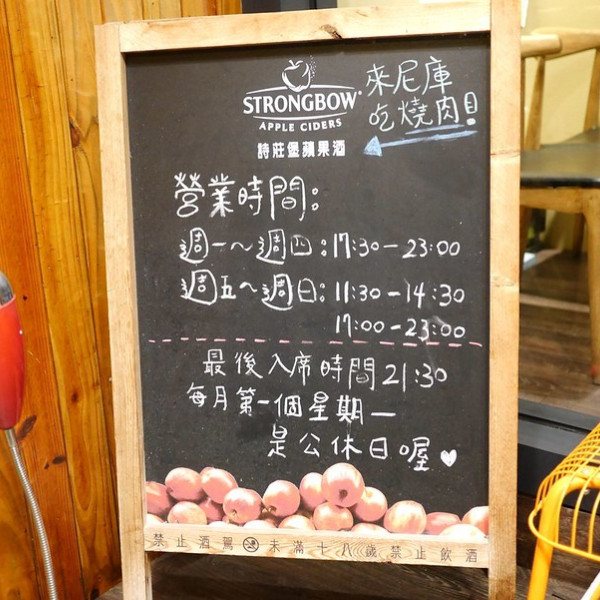 STRONGBOW®
APPLE CIDERS
詩莊堡蘋果酒
來尼庫
吃燒肉!
營業時間:
週一～週四:17:30-23:00
週五～週日:11:30-14:30
17:00-23:00
最後入席時間21:30
每月第一個星期一
是公休日喔♥
禁止酒駕 未滿十八歲禁止飲酒